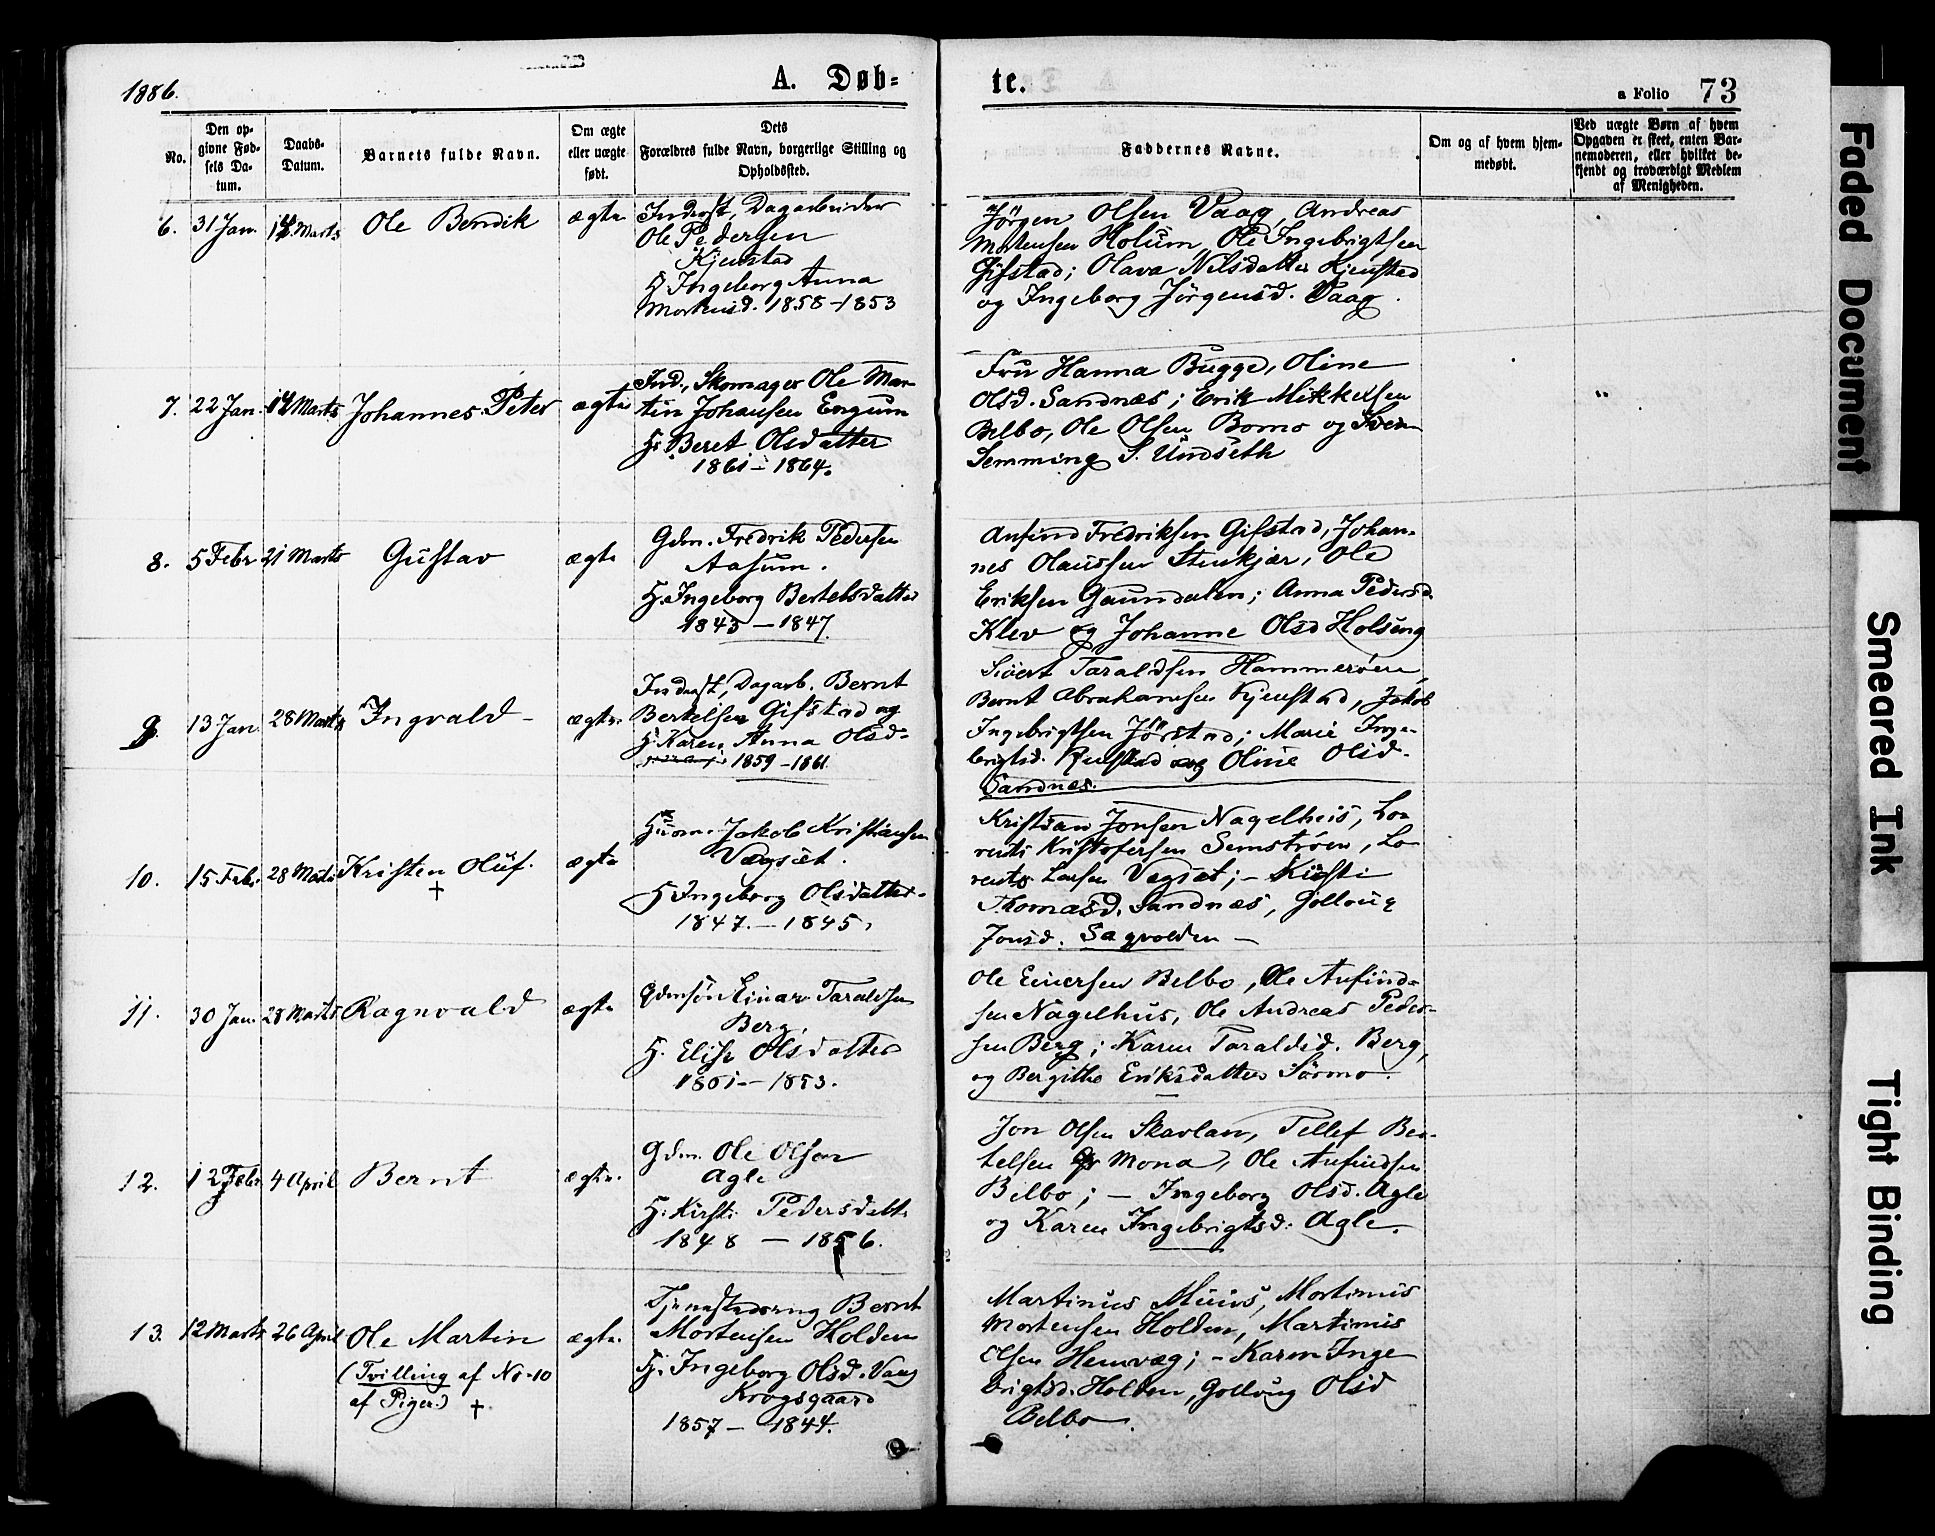 1886.
A. Døb=
te.
a Folio 73
No.
Den op-
givne Fød-
sels Da-
tum.
Daabs-
Datum.
Barnets fulde Navn.
Om ægte
eller uægte
født.
Dets
Forældres fulde Navn, borgerlige Stilling og
Opholdssted.
Faddernes Navne.
Om og af hvem hjem-
medøbt.
Ved uægte Børn af hvem
Opgaven er skeet, enten Bar-
nemoderen, eller hvilket be-
kjendt og troværdigt Medlem
af Menigheden.
6. 31 Jan. 14 Marts Ole Bendik ægte
Inderst, Dagarbeider
Ole Pedersen
Kjenstad
H. Ingeborg Anna
Mortensd. 1858-1853
Jørgen Olsen Vaag, Andreas
Mortensen Holum, Ole Ingebrigtsen
Gifstad; Olava Nilsdatter Kjenstad
og Ingeborg Jørgensd. Vaag.
7. 22 Jan. 14 Marts Johannes Peter ægte
Ind., Skomager Ole Mar-
tin Johansen Engum
H. Beret Olsdatter
1861-1864.
Fru Hanna Bugge, Oline
Olsd. Sandnæs; Erik Mikkelsen
Belbo, Ole Olsen Bomo og Sven
Lemming S. Undseth
8. 5 Febr 21 Marts Gustav ægte
Gdm. Fredrik Pedersen
Aasum.
H. Ingeborg Bertelsdatter
1843-1847.
Anfind Fredriksen Gifstad, Johan-
nes Olaussen Stenkjær, Ole
Eriksen Gaundalen; Anna Pedersd.
Klev og Johanne Olsd Holsing
9. 13 Jan. 28 Marts Ingvald- ægte.
Inderst, Dagarb. Bernt
Bertelsen Gifstad og
H. Karen Anna Olsd-
1859-1861.
Sivert Taraldsen Hammerøen
Bernt Abrahamsen Kjenstad, Jakob
Ingebrigtsen Jørstad; Marie Inge-
brigtsd. og Oline Olsd.
Sandnæs.
10. 15 Febr. 28 Marts Kristen Oluf. ægte
†
Husm. Jakob Kristiansen
Vegset.
H. Ingeborg Olsdatter-
1847.-1845.
Kristian Jonsen Nagelhus, Lo-
rents Kristofersen Semstrøen, Lo-
rents Larsen Vegset;- Kirsti
Thomasd. Sandnæs, Gollaug
Jonsd. Sagvolden-
11. 30 Jan. 28 Marts Ragnvald ægte
Gdmsøn Einar Taraldsen
Berg,
H. Elise Olsdatter
1851-1853.
Ole Einersen Belbo, Ole Anfind-
sen Nagelhus, Ole Andreas Peder-
sen Berg; Karen Taraldsd. Berg,
og Bergithe Eriksdatter Sørmo.
12. 12 Febr. 4 April Bernt ægte.
Gdm. Ole Olsen
Agle
H. Kirsti Pedersdatt.
1848 - 1856.
Jon Olsen Skavlan, Tellef Ber-
telsen Mona, Ole Anfindsen
Belbo;- Ingeborg Olsd. Agle
og Karen Ingebrigtsd. Agle.
13. 12 Marts 26 April Ole Martin ægte.
(Tvilling af No-10
af Piger.) †
Tjenestedreng Bernt
Mortensen Holden
Tj. Ingeborg Olsd. Vaag
Krogsgaard
1857-1844.
Martinus Muus, Mortinus
Mortensen Holden, Martinus
Olsen Hemvæg;- Karen Inge
brigtsd. Holden, Gollaug Olsd
Belbo.
Faded Document
Smeared Ink
Tight Binding